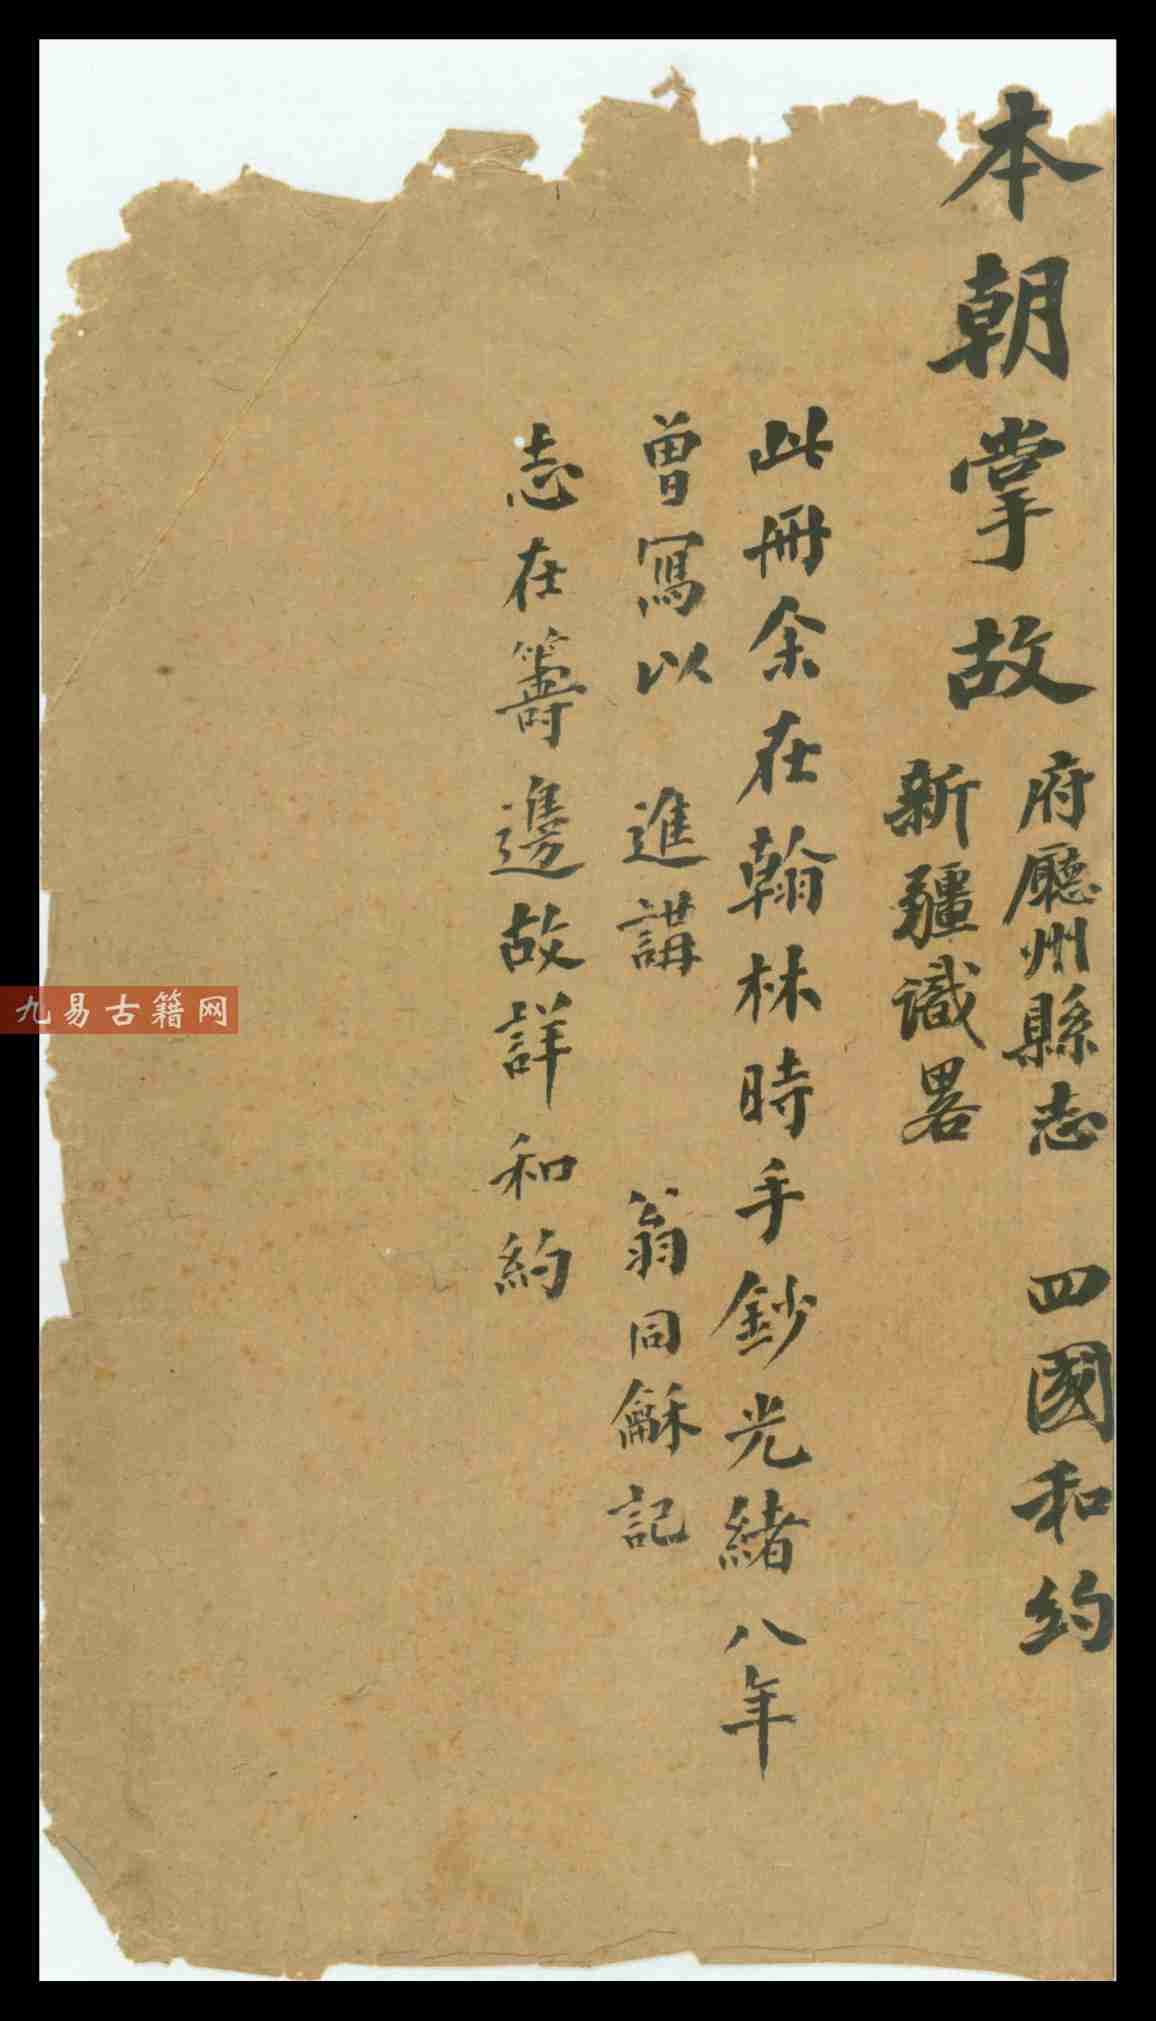 本朝掌故
府廳州縣志 四國和約
新疆識畧
此冊余在翰林時手鈔光緒八年
曾寫以 進講 翁同龢記
志在籌邊故詳和約
九易古籍网